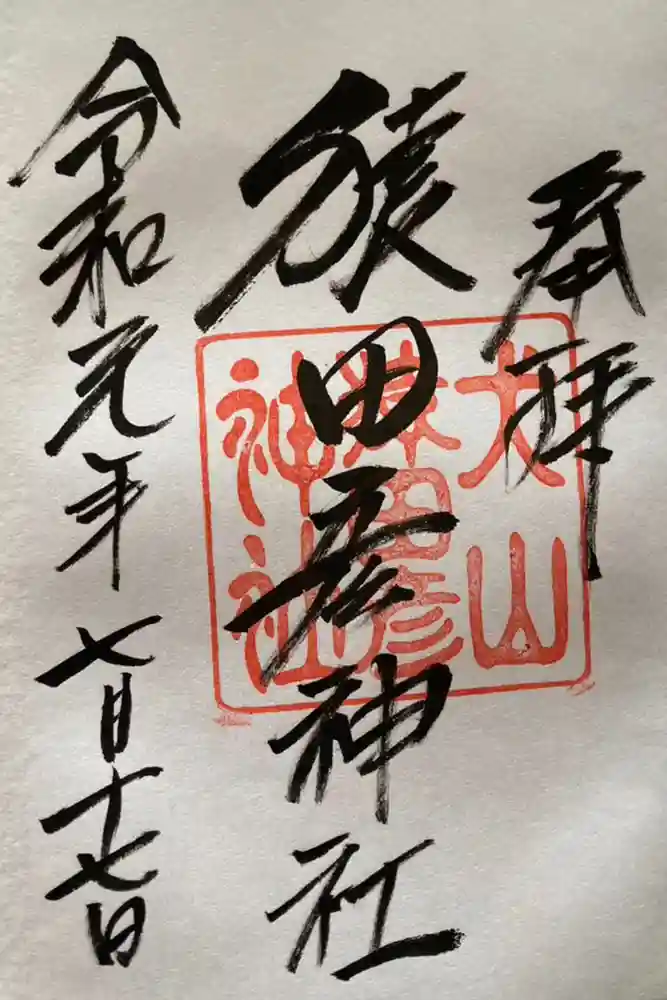 奉拝
犬山
猿田彦
神社
猿田彦神社
令和元年七月十七日